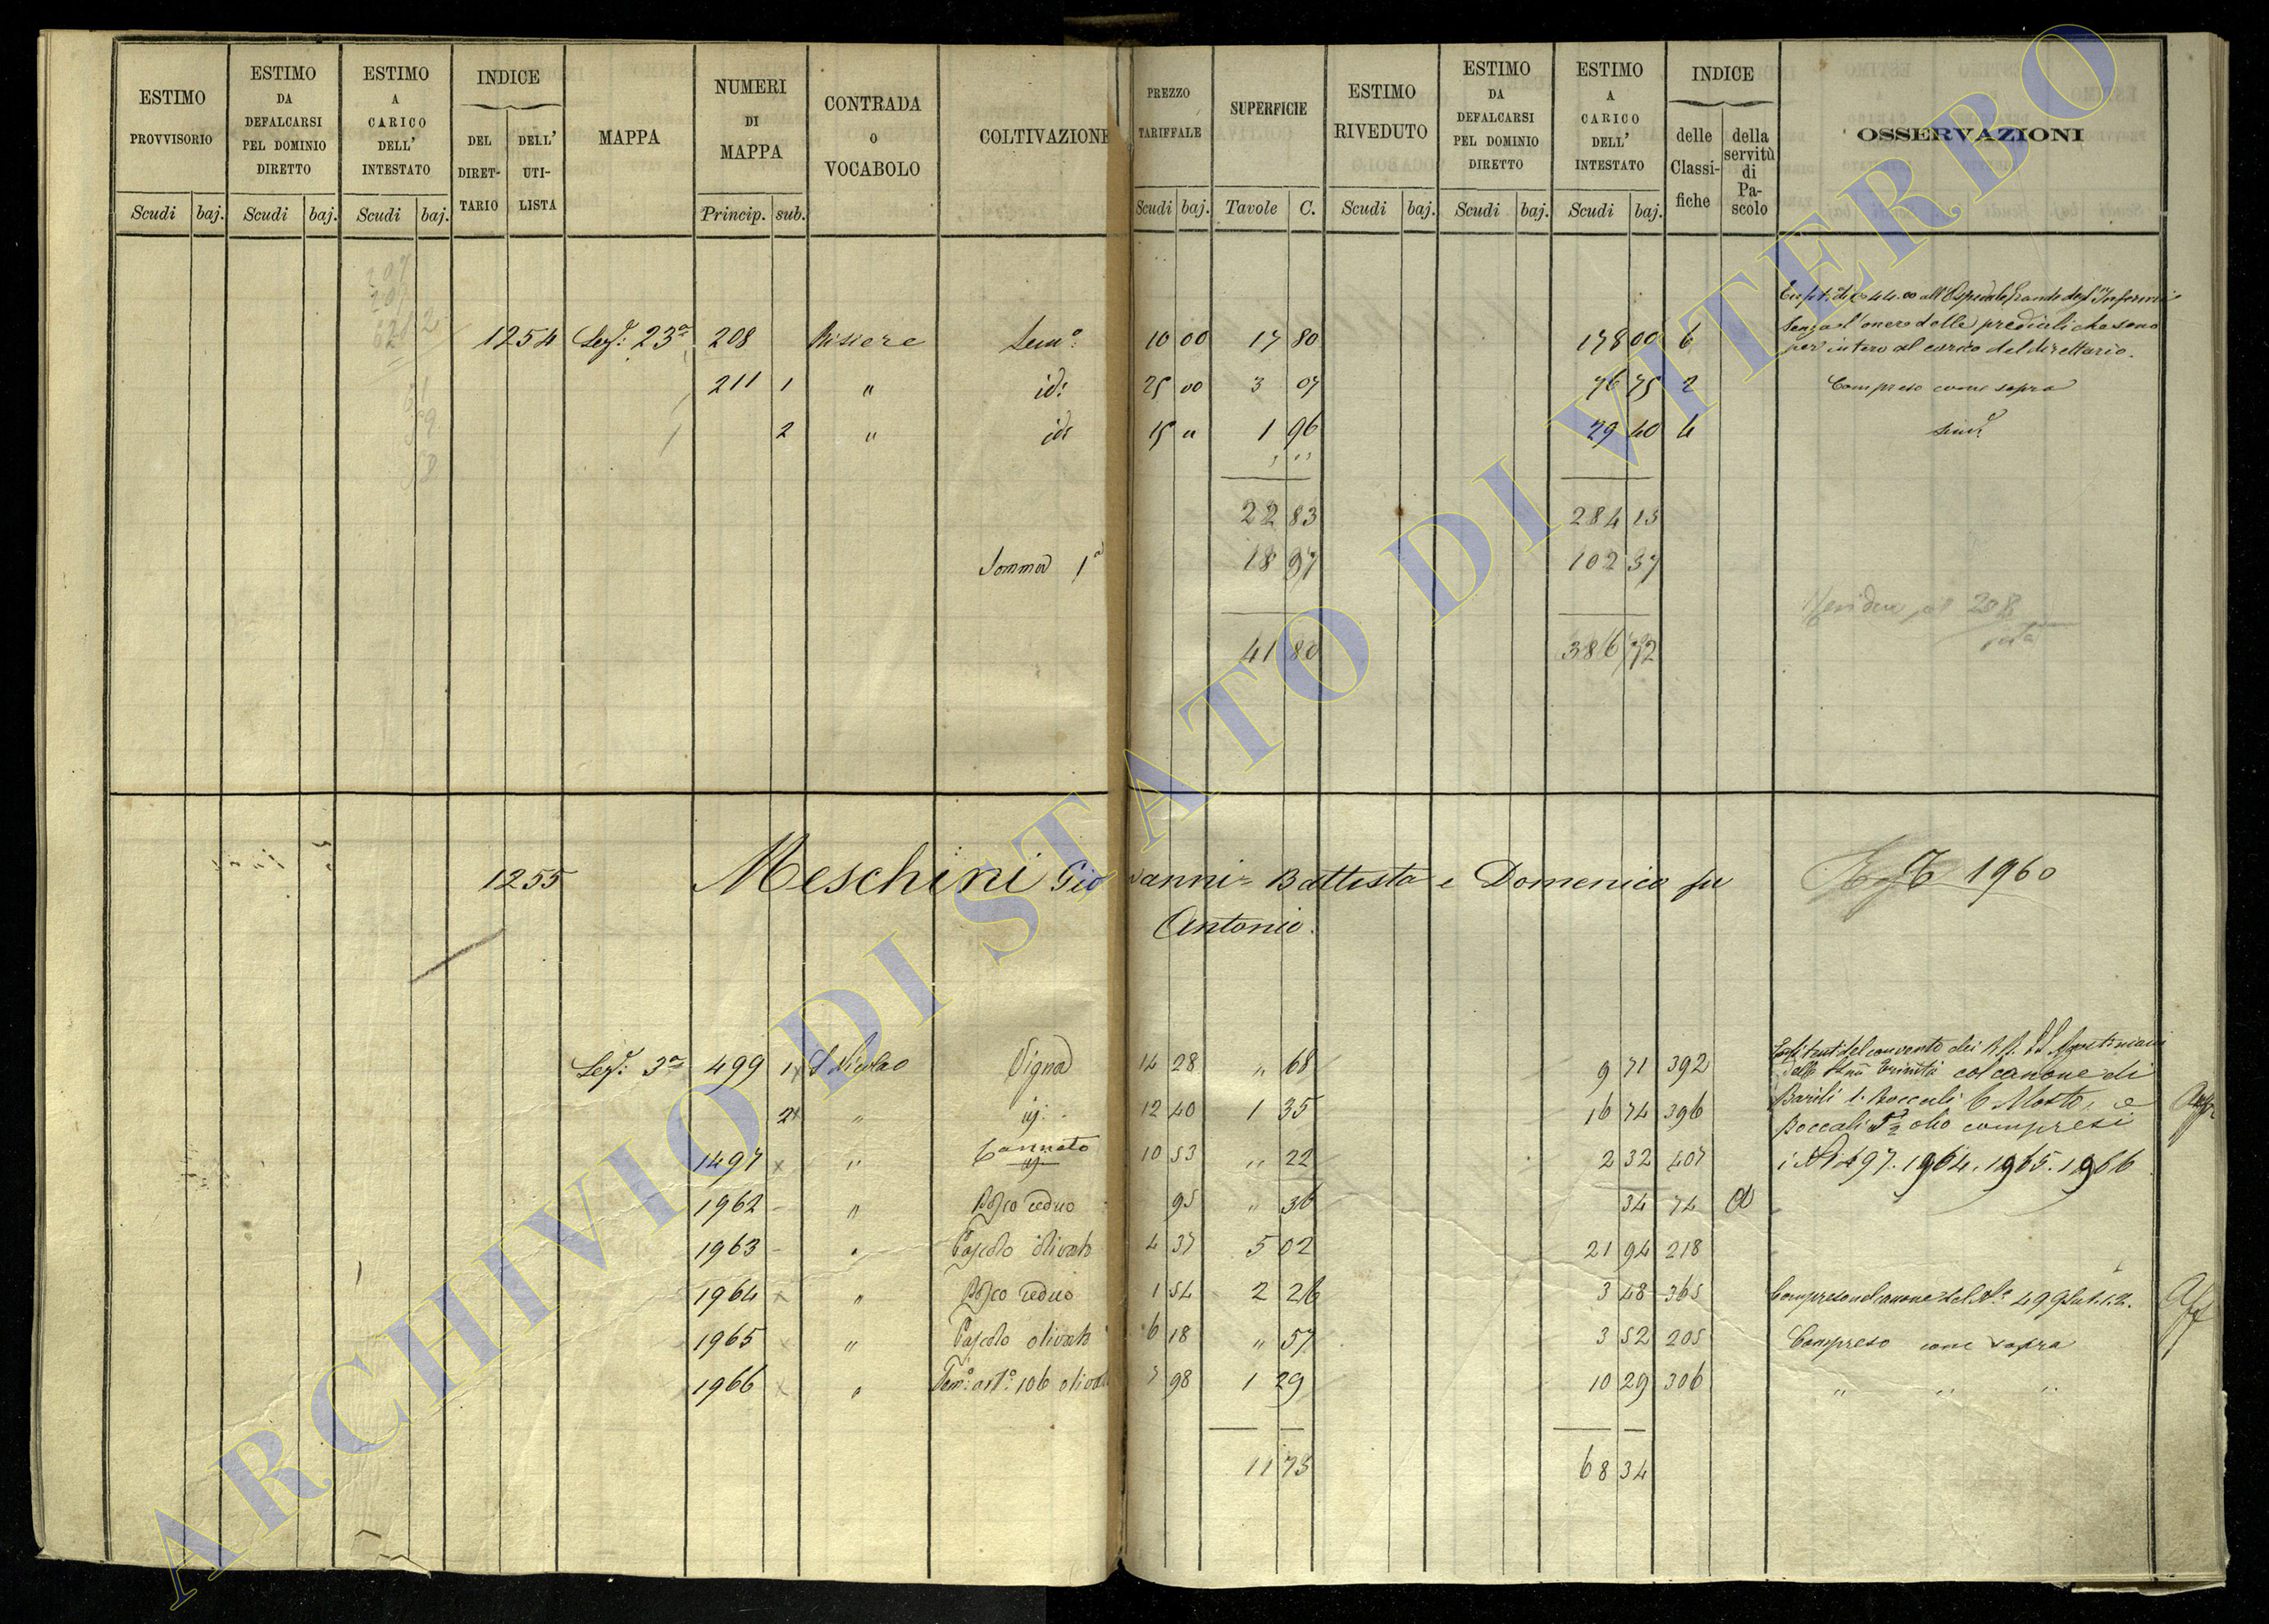 ESTIMO PROVVISORIO Scudi baj.
ESTIMO DA DEFALCARSI PEL DOMINIO DIRETTO Scudi baj.
ESTIMO A CARICO DELL' INTESTATO Scudi baj.
INDICE DEL DIRET-TARIO DELL' UTI-LISTA
MAPPA
NUMERI DI MAPPA Princip. sub.
CONTRADA o VOCABOLO
COLTIVAZIONE
PREZZO TARIFFALE Scudi baj.
SUPERFICIE Tavole C.
ESTIMO RIVEDUTO Scudi baj.
ESTIMO DA DEFALCARSI PEL DOMINIO DIRETTO Scudi baj.
ESTIMO A CARICO DELL' INTESTATO Scudi baj.
INDICE delle Classi-fiche della servitù di Pa-scolo
OSSERVAZIONI
44.00 all'Ospedale Grande degl'Infermi
senza l'onere delle prediali che sono
1254 Sez: 23ª 208 Risiere Sem° 10 00 17 80 178 00 6 per intero al carico del direttario.
211 1 " id: 25 00 3 07 76 75 2 Compreso come sopra
2 " id: 15 " 1 96 29 40 4
22 83 284 15
Somma 1ª 18 97 102 57
208
41 80 386 72
1255 Meschini Giovanni-Battista e Domenico fu 1960
Antonio.
Sez: 3ª 499 1 S Nicolao Vigna 14 28 " 68 9 71 392 del convento dei
Trinità col canone di
2 " 12 40 1 35 16 74 396 Barili 1. Boccali 6 Mosto, e
Boccali olio compresi
1497 " Canneto 10 53 " 22 2 32 407 i N 1497. 1964. 1965. 1966
1962 " Bosco ceduo 95 " 36 34 74
1963 " Pascolo olivato 4 37 5 02 21 94 218
1964 " Bosco ceduo 1 54 2 26 3 48 365 Compreso nel canone del N° 499 sub. 1. 2.
1965 " Pascolo olivato 6 18 " 57 3 52 205 Compreso come sopra
1966 " Sem° art° 106 olivato 7 98 1 29 10 29 306 " " "
11 75 68 34
ARCHIVIO DI STATO DI VITERBO